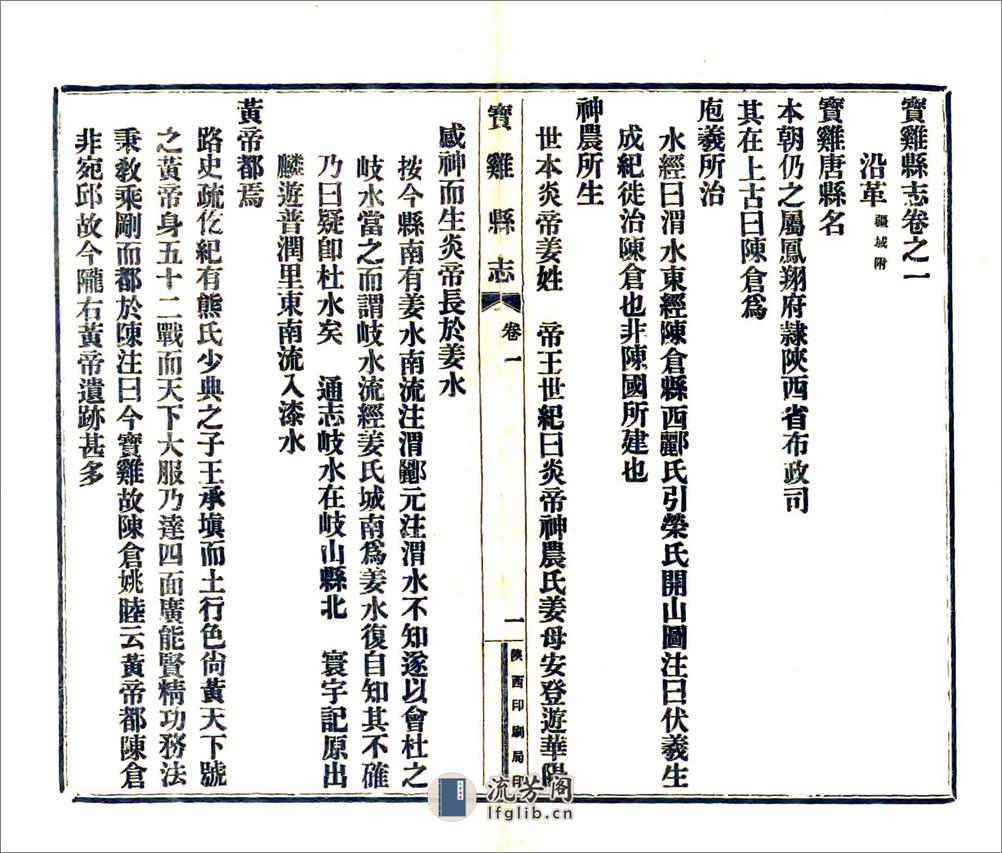 寶雞縣志卷之一
沿革 疆域附
寶雞唐縣名
本朝仍之屬鳳翔府隸陝西省布政司
其在上古曰陳倉爲
庖羲所治
水經曰渭水東經陳倉縣西酈氏引榮氏開山圖注曰伏羲生
成紀徙治陳倉也非陳國所建也
神農所生
世本炎帝姜姓 帝王世紀曰炎帝神農氏姜母安登遊華陽
寶雞縣志 卷一 一 陝西印刷局印
感神而生炎帝長於姜水
按今縣南有姜水南流注渭酈元注渭水不知遂以會杜之
岐水當之而謂岐水流經姜氏城南爲姜水復自知其不確
乃曰疑卽杜水矣 通志岐水在岐山縣北 寰宇記原出
麟遊普潤里東南流入漆水
黃帝都焉
路史疏仡紀有熊氏少典之子王承塡而土行色尙黃天下號
之黃帝身五十二戰而天下大服乃達四面廣能賢精功務法
秉敎乘剛而都於陳注曰今寶雞故陳倉姚睦云黃帝都陳倉
非宛邱故今隴右黃帝遺跡甚多
流芳阁
lfglib.cn